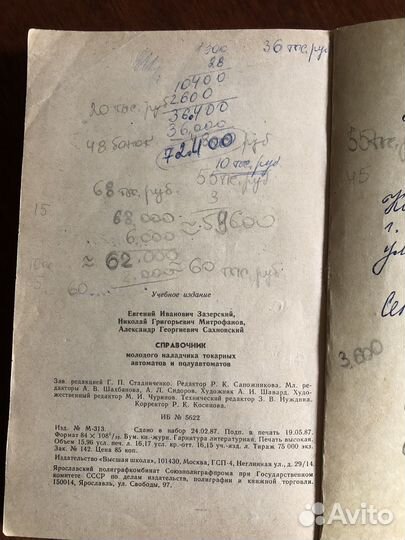 1300
28
36 тыс.руб
10400
2600
20 тыс.руб
36.400
36.000
48 банок
72.400
руб
10 тыс.руб
68 тыс.руб.
55 тыс.руб
3
15
68.000 ≈ 59600
6.000
≈ 62.000
≈ 60 тыс.руб.
60
3.600
Учебное издание
Евгений Иванович Зазерский,
Николай Григорьевич Митрофанов,
Александр Георгиевич Сахновский
СПРАВОЧНИК
молодого наладчика токарных
автоматов и полуавтоматов
Зав. редакцией Г. П. Стадниченко. Редактор Р. К. Сапожникова. Мл. ре-
дакторы А. В. Шахбанова, А. Л. Сидоров. Художник А. И. Шавард. Худо-
жественный редактор М. И. Чуринов. Технический редактор З. В. Нуждина.
Корректор Р. К. Косинова.
ИБ № 5622
Изд. № М-313. Сдано в набор 24.02.87. Подп. в печать 19.05.87.
Формат 84 × 108¹/₃₂. Бум. кн.-журн. Гарнитура литературная. Печать высокая.
Объем 15,96 усл. печ. л. 16,17 усл. кр.-отт. 16,15 уч.-изд. л. Тираж 75 000 экз.
Зак. № 142. Цена 85 коп.
Издательство «Высшая школа», 101430, Москва, ГСП-4, Неглинная ул., д. 29/14.
Ярославский полиграфкомбинат Союзполиграфпрома при Государственном
комитете СССР по делам издательств, полиграфии и книжной торговли.
150014, Ярославль, ул. Свободы, 97.
Avito